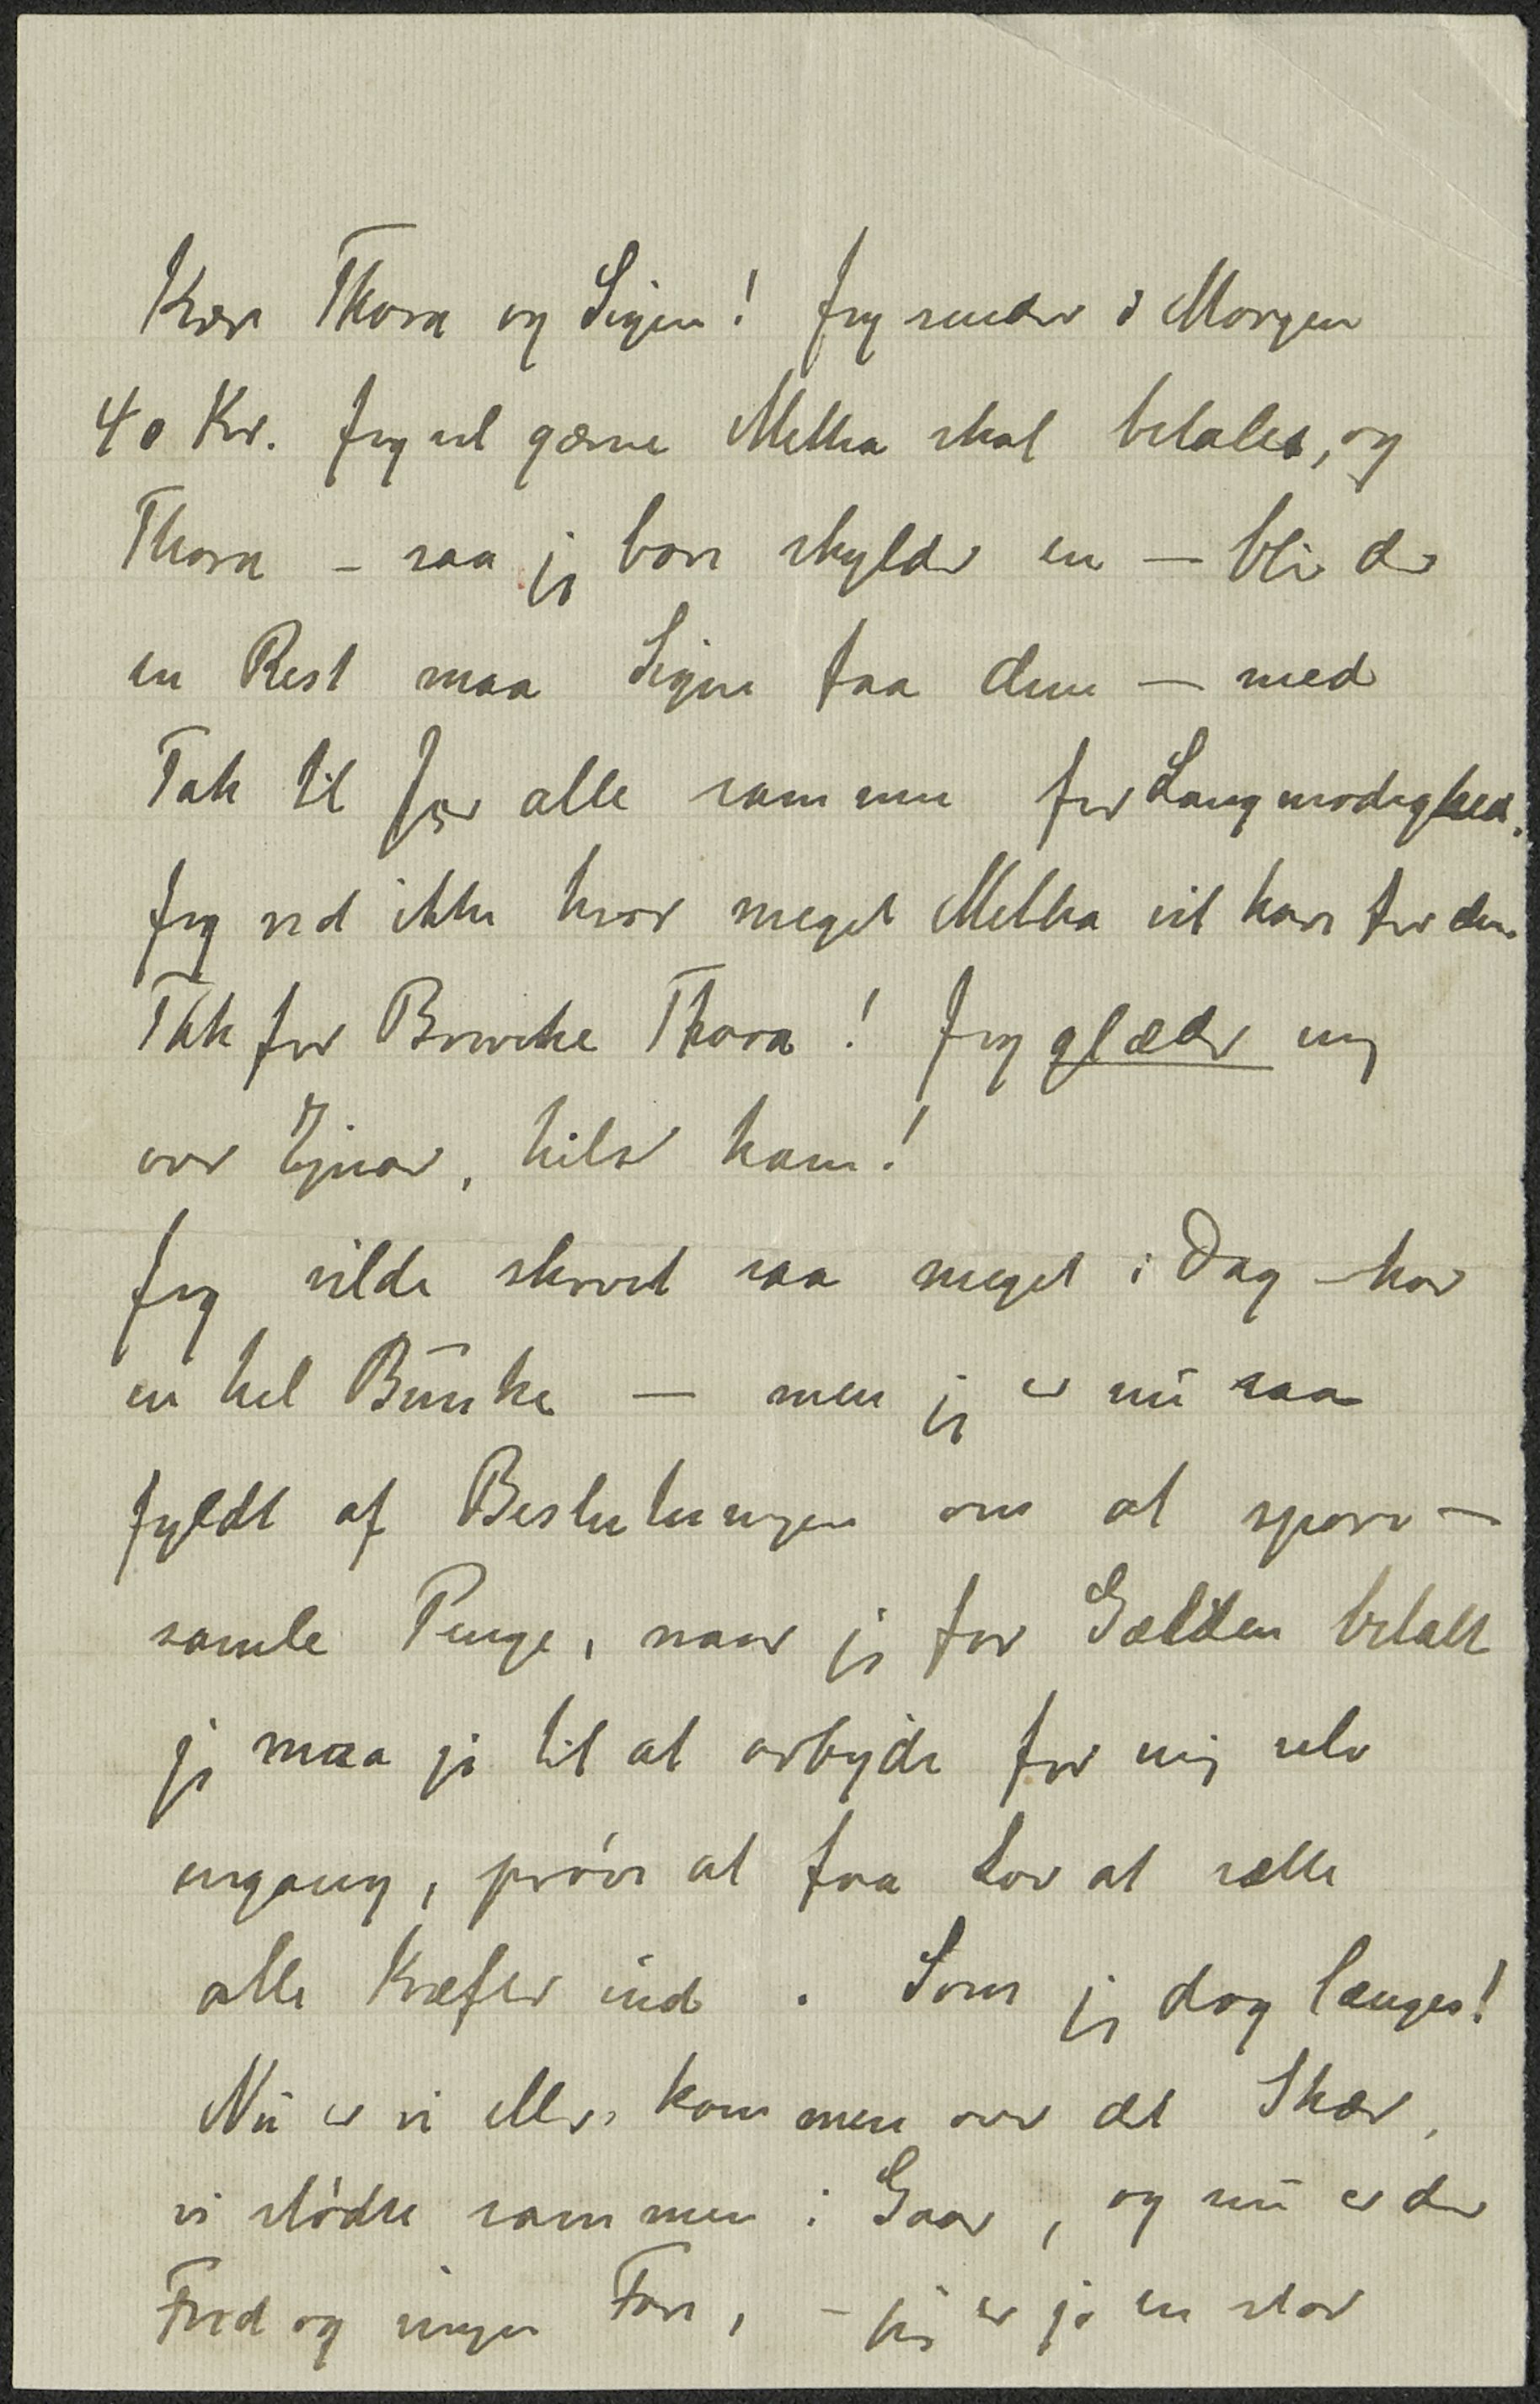 Kære Thora og Signe! Jeg sender i Morgen
40 Kr. Jeg vil gærne Metha skal betales, og
Thora – saa jeg bare skylder en — blir der
en Rest maa Signe faa den — med
Tak til Jer alle sammen for Langmodighed.
Jeg ved ikke hvor meget Metha vil have for den
Tak for Brevene Thora! Jeg glæder mig
over Ejnar, hils ham!
Jeg vilde skrevet saa meget i Dag – har
en hel Bunke — men jeg er nu saa
fyldt af Beslutningen om at spare —
samle Penge, naar jeg faar Gælden betalt
jeg maa jo til at arbejde for mig selv
engang, prøve at faa Lov at sætte
alle Kræfter ind . Som jeg dog længes!
Nu er vi ellers kommen over det Skær,
vi stødte sammen i Gaar, og nu er der
Fred og ingen Fare, – jeg er jo en stor